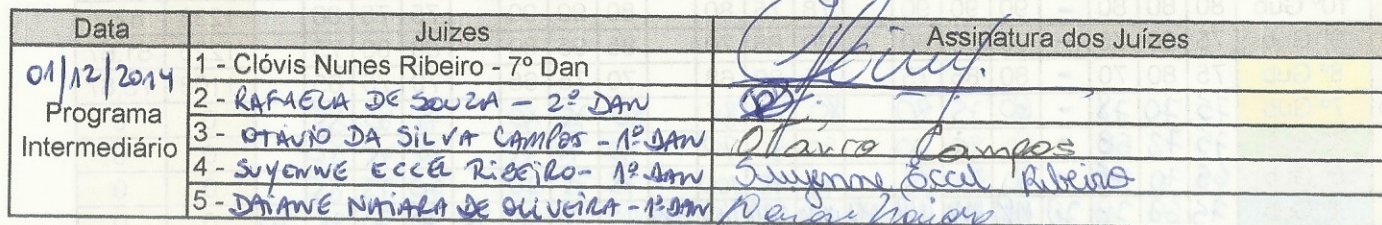 Data Juizes Assinatura dos Juízes
01/12/2014
Programa
Intermediário
1 - Clóvis Nunes Ribeiro - 7º Dan
2 - RAFAELA DE SOUZA - 2º DAN
3 - OTÁVIO DA SILVA CAMPOS - 1º DAN Otávio Campos
4 - SUYENNE ECCEL RIBEIRO - 1º DAN Suyenne Eccel Ribeiro
5 - DAIANE NAIARA DE OLIVEIRA - 1º DAN Daiane Naiara